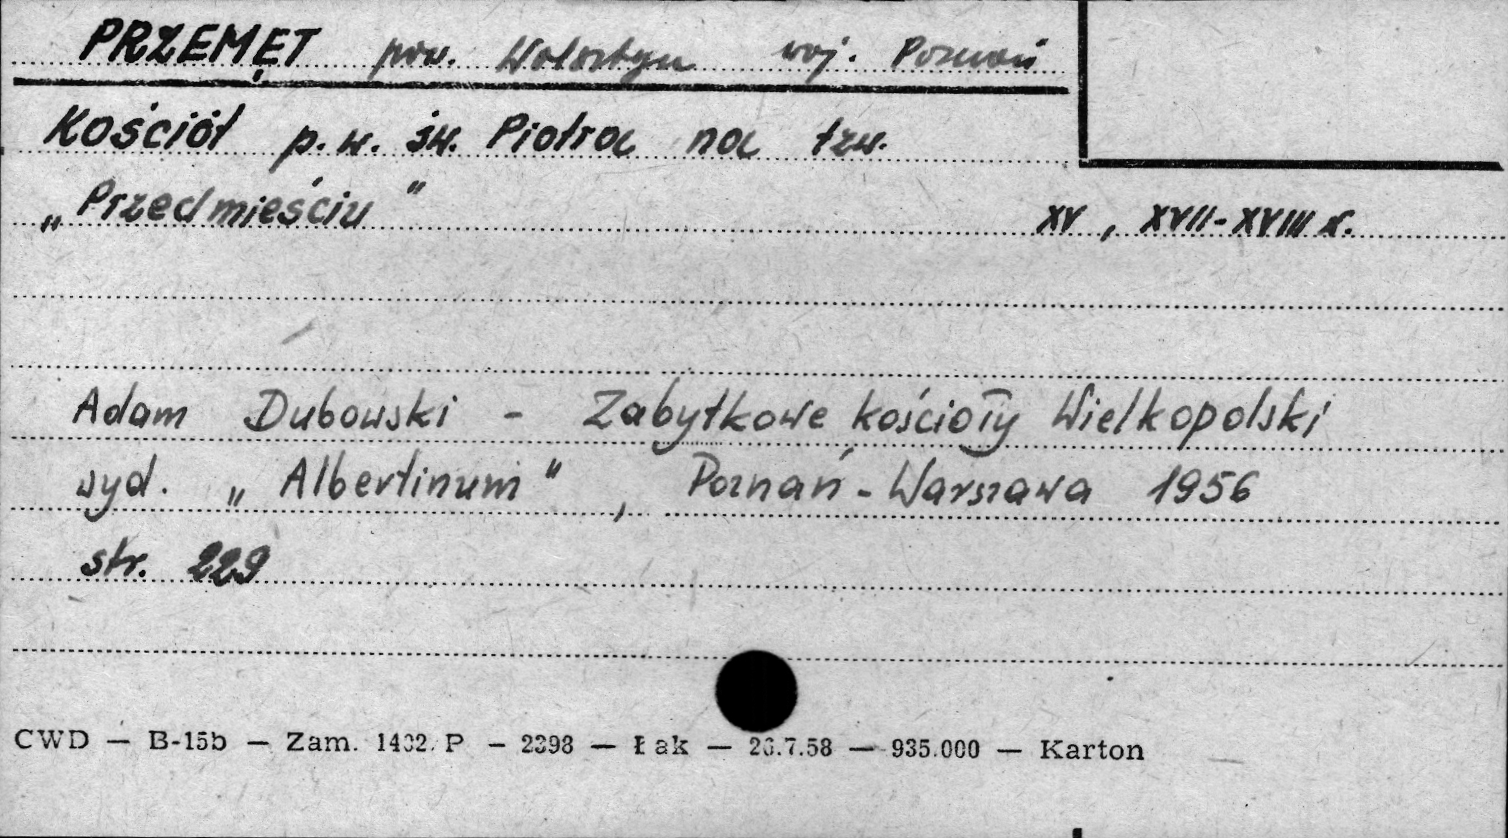 PRZEMĘT pow. Wolsztyn woj. Poznań
Kościół p.w. św. Piotra na tzw.
„Przedmieściu" XV, XVII-XVIII w.
Adam Dubowski - Zabytkowe kościoły Wielkopolski
wyd. „Albertinum", Poznań - Warszawa 1956
str. 229
CWD — B-15b — Zam. P — 2398 — Łak — .7.58 — 935.000 — Karton